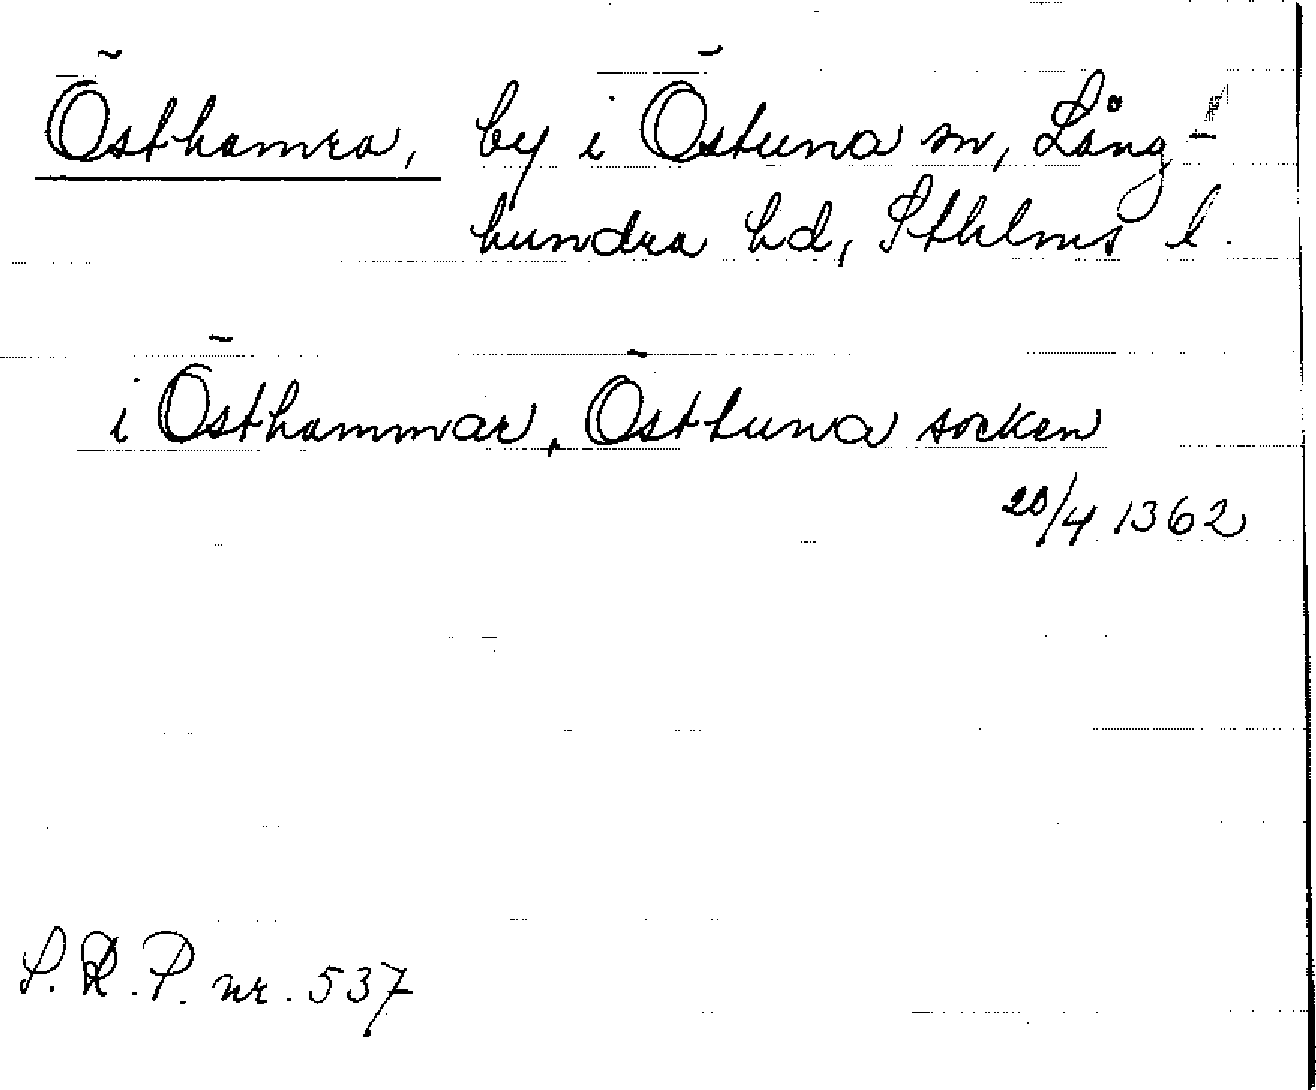 Östhamra, by i Östuna sn, Lång-
hundra hd, Sthlms l.
i Östhammar, Östtuna socken
20/4 1362
S.R.P. nr. 537